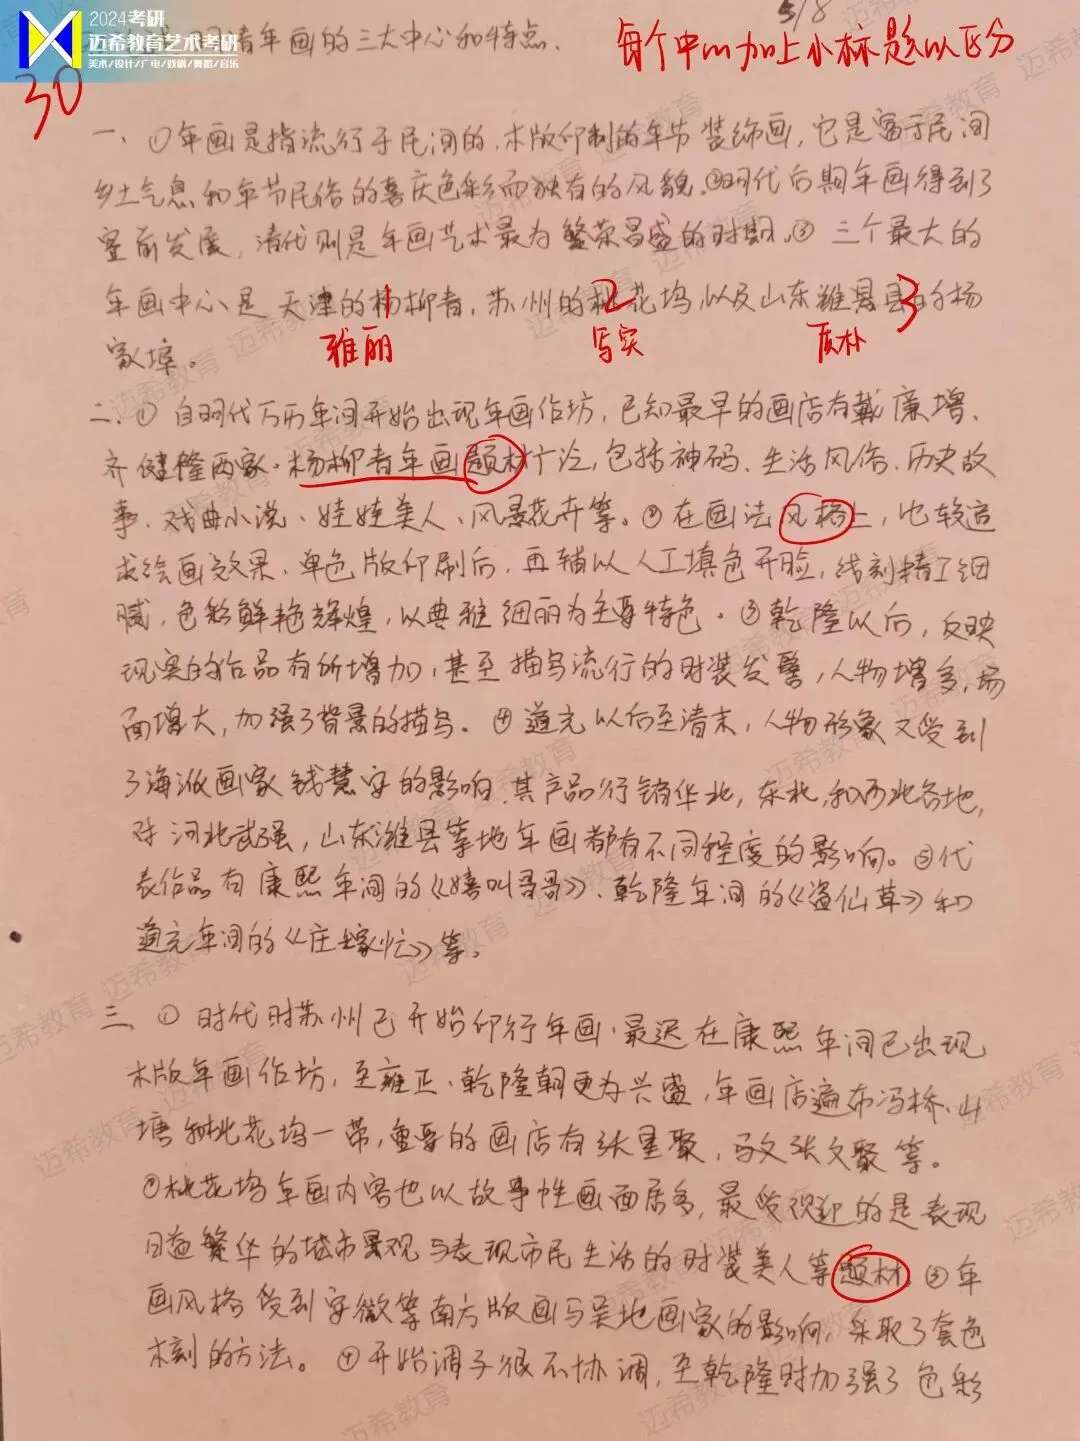 2024考研
迈希教育艺术考研
美术/设计/广电/戏剧/舞蹈/音乐
年画的三大中心和特点.
5/8
每个中心加上小标题以区分
30
一、①年画是指流行于民间的,木版印制的年节装饰画,它是富于民间
乡土气息和年节民俗的喜庆色彩而独有的风貌.②明代后期年画得到了
空前发展,清代则是年画艺术最为繁荣昌盛的时期.③三个最大的
年画中心是天津的杨柳青,苏州的桃花坞以及山东潍县的杨
1 2 3
雅丽 写实 质朴
家埠。
二.①自明代万历年间开始出现年画作坊,已知最早的画店有戴廉增、
齐健隆两家.杨柳青年画题材广泛,包括神码、生活风俗、历史故
事、戏曲小说、娃娃美人、风景花卉等。②在画法风格上,比较追
求绘画效果、单色版印刷后,再辅以人工填色开脸,线刻精工细
腻,色彩鲜艳辉煌,以典雅细丽为主要特色.③乾隆以后,反映
现实的作品有所增加,甚至描写流行的时装发髻,人物增多,场
面增大,加强了背景的描写。④道光以后至清末,人物形象又受到
了海派画家钱慧安的影响.其产品行销华北,东北,和西北各地,
对河北武强,山东潍县等地年画都有不同程度的影响。⑤代
表作品有康熙年间的《嬉叫哥哥》、乾隆年间的《盗仙草》和
道光年间的《庄稼忙》等。
三、①明代时苏州已开始印行年画.最迟在康熙年间已出现
木版年画作坊,至雍正、乾隆朝更为兴盛,年画店遍布冯桥、山
塘和桃花坞一带,重要的画店有张星聚,马文张文聚等。
②桃花坞年画内容也以故事性画面居多,最受欢迎的是表现
日益繁华的城市景观与表现市民生活的时装美人等题材③年
画风格受到安徽等南方版画与吴地画家的影响,采取了套色
木刻的方法。④开始调子很不协调,至乾隆时加强了色彩
迈希教育